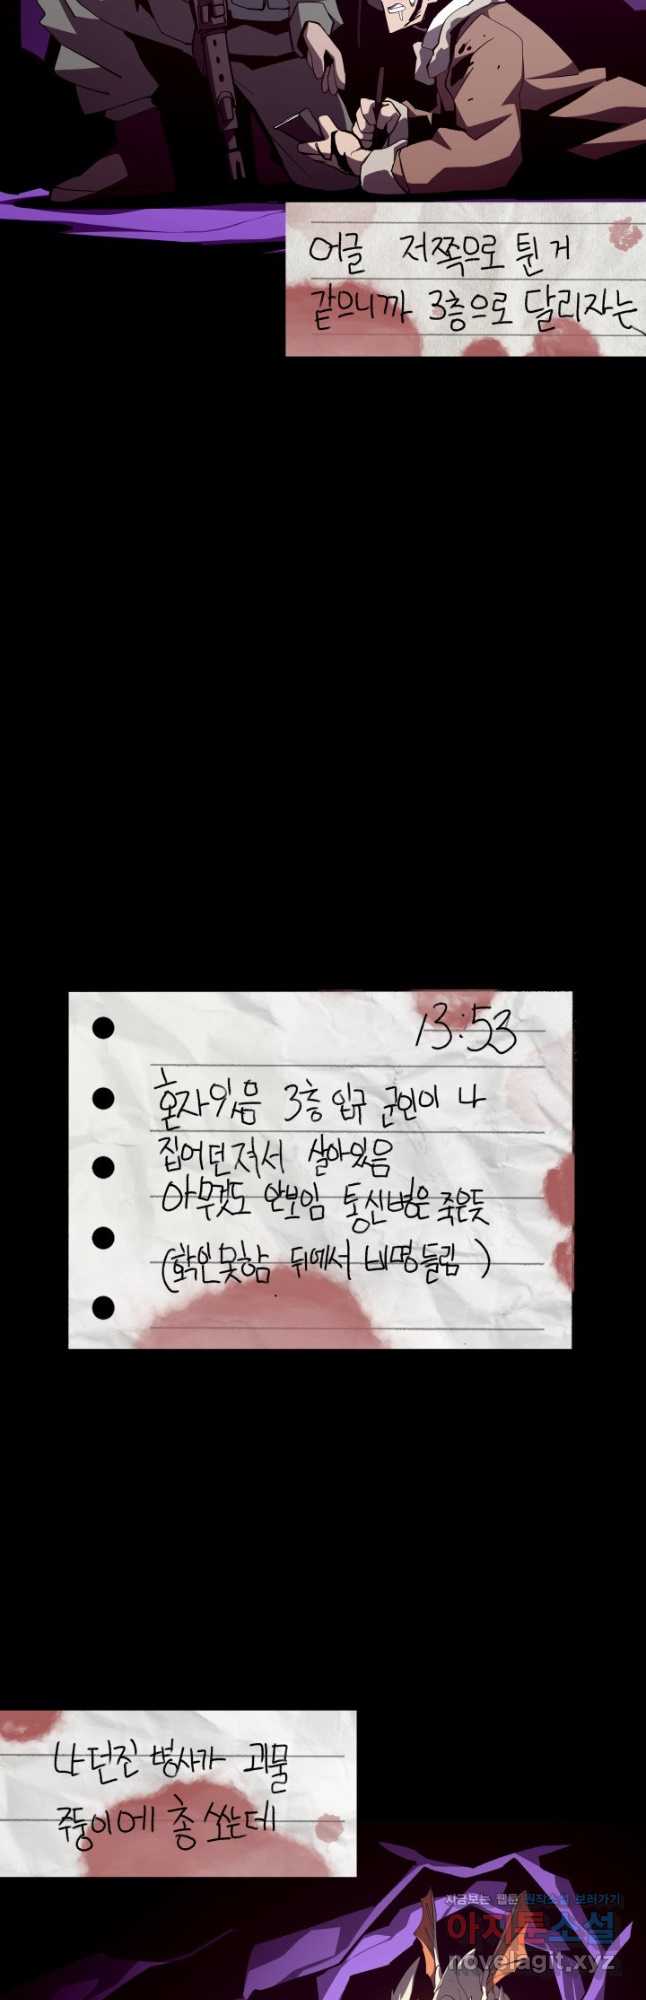 어글 저쪽으로 튄 거
같으니까 3층으로 달리자는
13:53
혼자있음 3층 입구 군인이 나
집어던져서 살아있음
아무것도 안보임 통신병은 죽은듯
(확인못함 뒤에서 비명들림)
나 던진 병사가 괴물
주둥이에 총 쏘는데
지금보는 웹툰 원작소설 보러가기
아지툰소설
novelagit.xyz